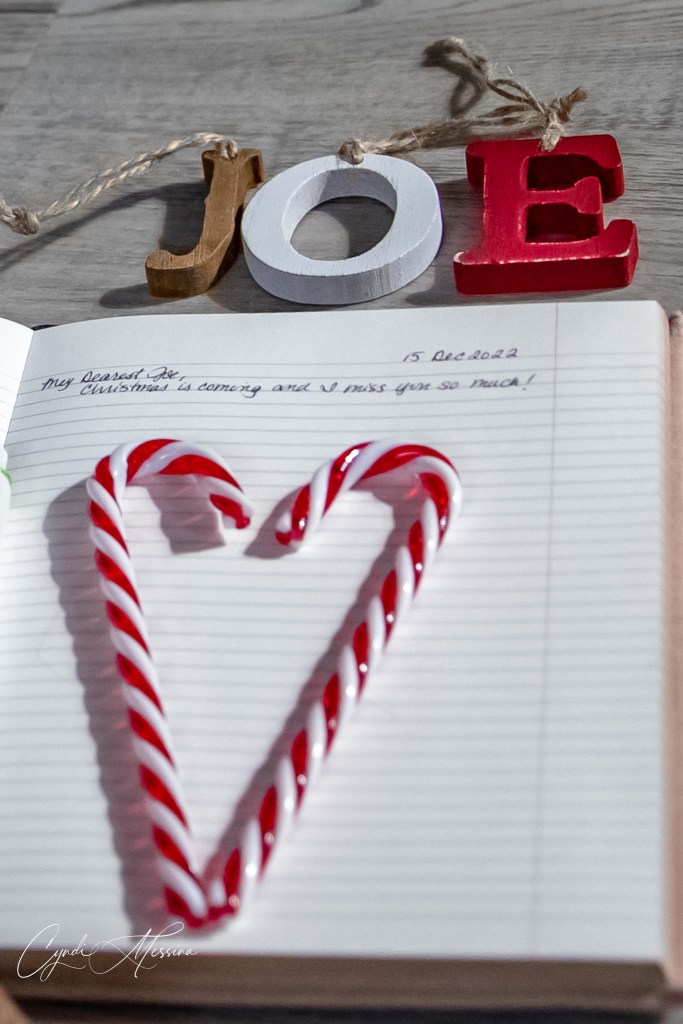 JOE
15 Dec 2022
My Dearest Joe,
Christmas is coming and I miss you so much!
Cyndi Messina